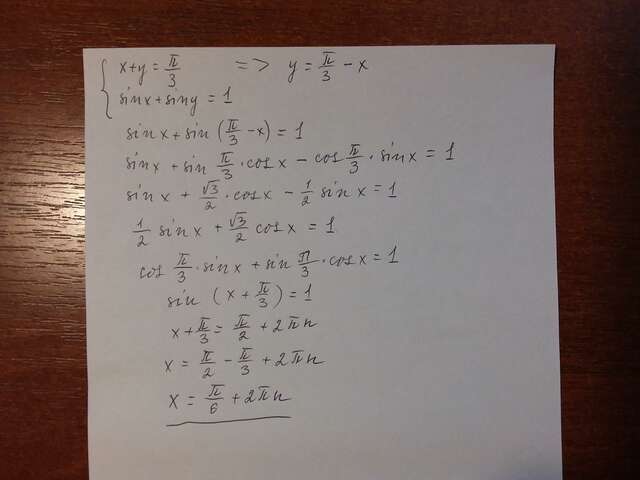 { x+y = π/3 => y = π/3 - x
sinx + siny = 1
sin x + sin (π/3 - x) = 1
sinx + sin π/3 · cosx - cos π/3 · sinx = 1
sin x + √3/2 · cosx - 1/2 sin x = 1
1/2 sin x + √3/2 cosx = 1
cos π/3 · sinx + sin π/3 · cosx = 1
sin (x + π/3) = 1
x + π/3 = π/2 + 2πn
x = π/2 - π/3 + 2πn
x = π/6 + 2πn